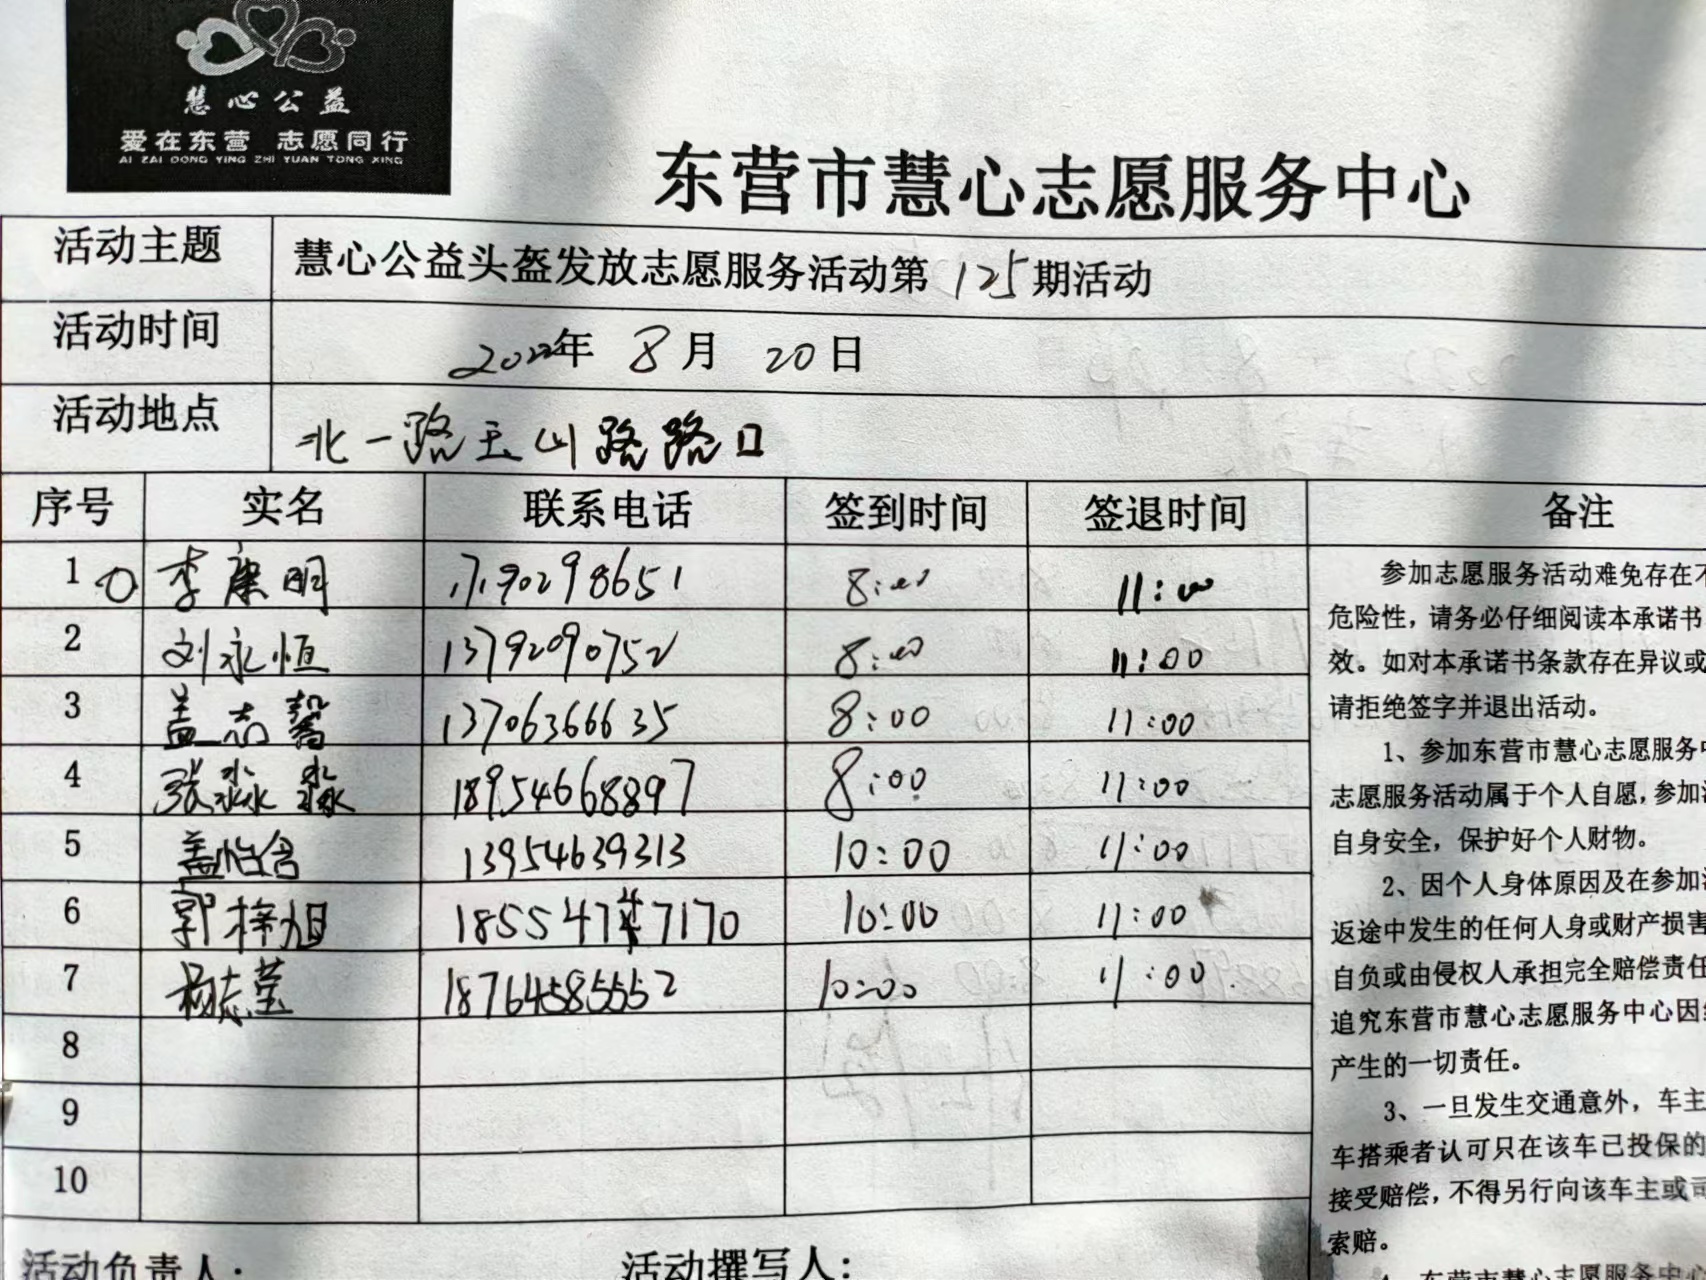 慧心公益
爱在东营 志愿同行
AI ZAI DONG YING ZHI YUAN TONG XING
东营市慧心志愿服务中心
活动主题 慧心公益头盔发放志愿服务活动第125期活动
活动时间 2022年 8月 20日
活动地点 北一路玉山路路口
序号 实名 联系电话 签到时间 签退时间 备注
1 李康明 8:00 11:00
2 刘永恒 13792090752 8:00 11:00
3 盖志馨 13706366635 8:00 11:00
4 张淼淼 18954668897 8:00 11:00
5 盖怡含 13954639313 10:00 11:00
6 郭梓旭 10:00 11:00
7 杨志莹 18764585552 10:00 11:00
8
9
10
参加志愿服务活动难免存在不
危险性，请务必仔细阅读本承诺书
效。如对本承诺书条款存在异议或
请拒绝签字并退出活动。
1、参加东营市慧心志愿服务中
志愿服务活动属于个人自愿，参加活
自身安全，保护好个人财物。
2、因个人身体原因及在参加活
返途中发生的任何人身或财产损害
自负或由侵权人承担完全赔偿责任
追究东营市慧心志愿服务中心因
产生的一切责任。
3、一旦发生交通意外，车主
车搭乘者认可只在该车已投保的
接受赔偿，不得另行向该车主或司
索赔。
东营市慧心志愿服务中心
活动负责人：
活动撰写人：